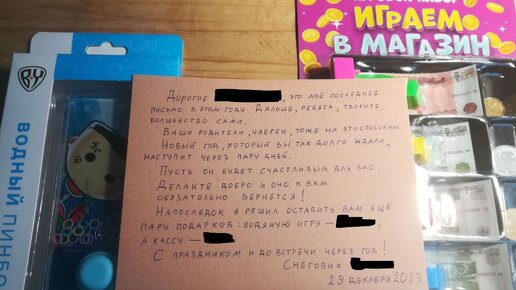 ИГРАЕМ
В МАГАЗИН
ВУ
ВОДНЫЙ ПИНБО
Дорогие, это моё последнее
письмо в этом году. Дальше, ребята, творите
волшебство сами.
Ваши родители, уверен, тоже на это способны.
Новый год, который вы так долго ждали,
наступит через пару дней.
Пусть он будет счастливым для вас.
Делайте добро и оно к вам
обязательно вернётся!
Напоследок я решил оставить вам ещё
пару подарков: водяную игру –
а кассу –
С праздником и до встречи через год!
Снеговик
29 декабря 2023